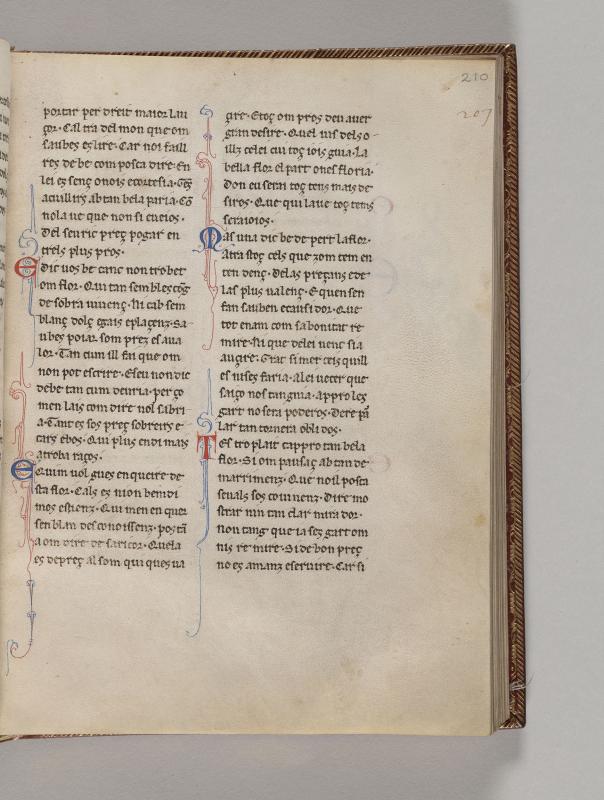 210
207
portar per dreit maior lau
çor. Cal tra del mon que om
saubes eslire. Car noi faill
res de be com posca dire. En
lei es senç onors ecortesia. Gēz
acuillirs ab tan bela paria. Cō
nola ue que non si eneios.
Del seu ric preç pogar en
trels plus pros.
E dic uos be canc non trobet
om flor. Qui tan sembles
de sobra iouenç. Ni cab sem
blanç dolç egais eplaçenz. Sa
ubes poiar som prez es aua
lor. Tan cum ill fai que om
non pot escrire. E seu non dic
debe tan cum deuria. perço
men lais com dire nol sabri
a. Tant es sos preç sobreirs e
cars ebos. Qui plus endi mais
atroba raços.
E qium uol gues enqueire de
sta flor. Cals es nion ben di
mos escienz. Qui men en quer
semblan desconoissenz. pos tā
a om dire de sa ricor. Quela
es de preç al som qui ques ua
çire. Etoç om pros deu auer
gran desire. Quel uis dels o
illz celei cui toç iois guia. La
bella flor el part ones floria.
Don eu serai toç tens mais de
siros. Que qui laue toç tens
seraioios.
Mas una dic be de pert la flor.
Atrastoç cels que zom tem en
ten denç. Delas preçans ede
las plus ualenç. E quen sen
fan sauben ecausidor. Que
tot enam com sa bonitat re
mire. Ni que delei uenc sia
auçire. Grat si mer ceis quill
es nises faria. Alei uecer que
saiço nos tanguia. appro les
gart no sera poderos. Dere pā
lar tan tornera obli dos.
Tes tro plait cappro tan bela
flor. Si om pausaç ab tan de
marrimenz. Que noil posca
seuals ses couinenz. Dire mo
strar nin tan clar mira dor.
non tang que ia ses gart om
nis re mire. Si de bon preç
no es amanz eseruire. Car si